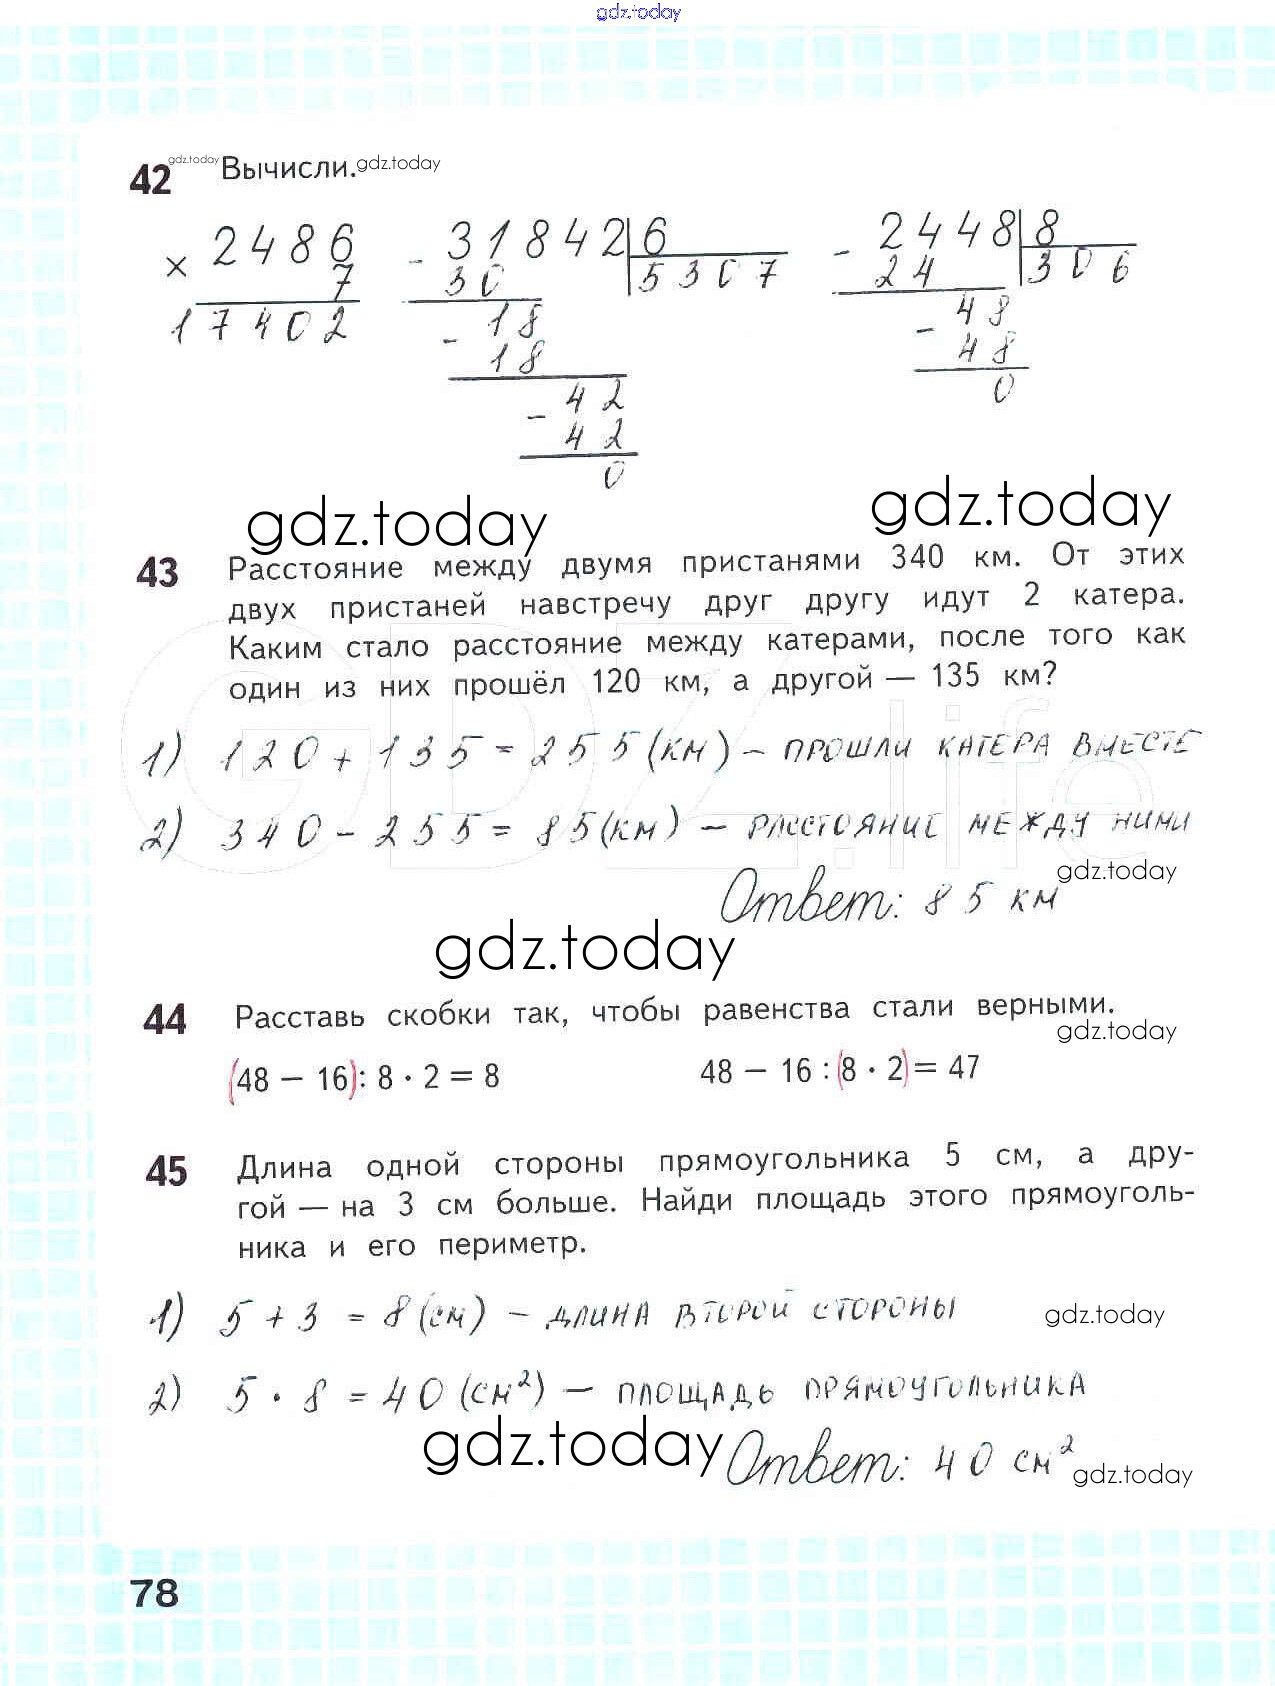 gdz.today
42 gdz.today Вычисли. gdz.today
× 2486 - 31842 6 - 2448 8
7 30 5307 24 306
17402 - 18 - 48
18 48
- 42 0
42
0
gdz.today gdz.today
43 Расстояние между двумя пристанями 340 км. От этих
двух пристаней навстречу друг другу идут 2 катера.
Каким стало расстояние между катерами, после того как
один из них прошёл 120 км, а другой — 135 км?
GDZ.life
1) 120 + 135 = 255 (км) – прошли катера вместе
2) 340 - 255 = 85 (км) – расстояние между ними
gdz.today
Ответ: 85 км
gdz.today
44 Расставь скобки так, чтобы равенства стали верными.
gdz.today
(48 − 16) : 8 · 2 = 8 48 − 16 : (8 · 2) = 47
45 Длина одной стороны прямоугольника 5 см, а дру-
гой — на 3 см больше. Найди площадь этого прямоуголь-
ника и его периметр.
1) 5 + 3 = 8 (см) – длина второй стороны gdz.today
2) 5 · 8 = 40 (см²) – площадь прямоугольника
gdz.today Ответ: 40 см² gdz.today
78